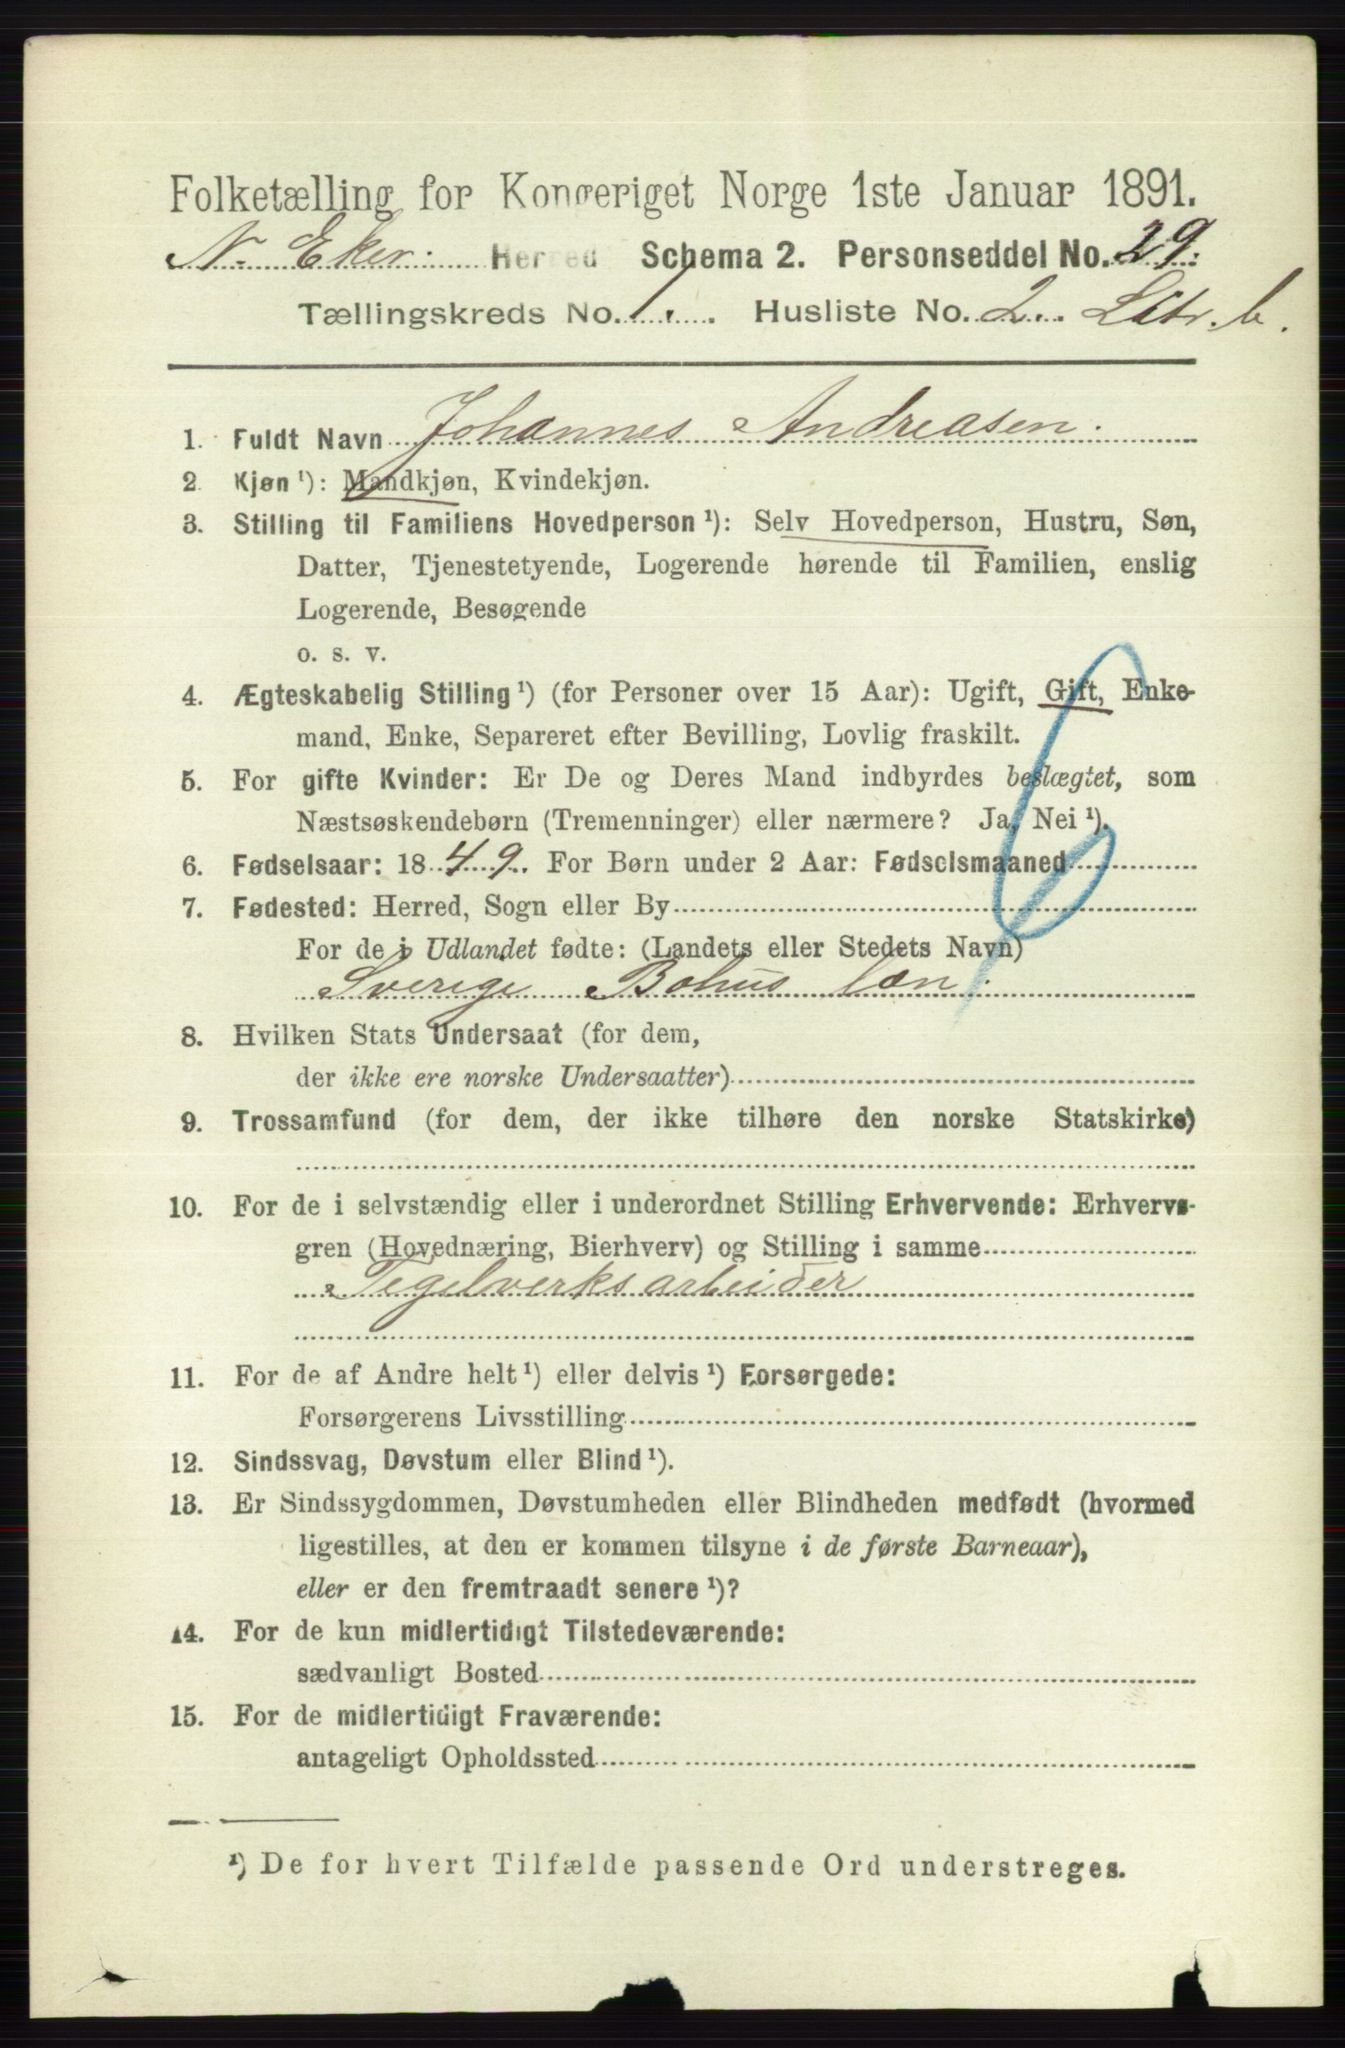 Folketælling for Kongeriget Norge 1ste Januar 1891.
N. Eker: Herred Schema 2. Personseddel No. 29.
Tællingskreds No. 1. Husliste No. 2. Litr. b.
1. Fuldt Navn Johannes Andreasen.
2. Kjøn ¹): Mandkjøn, Kvindekjøn.
3. Stilling til Familiens Hovedperson ¹): Selv Hovedperson, Hustru, Søn,
Datter, Tjenestetyende, Logerende hørende til Familien, enslig
Logerende, Besøgende
o. s. v.
4. Ægteskabelig Stilling ¹) (for Personer over 15 Aar): Ugift, Gift, Enke-
mand, Enke, Separeret efter Bevilling, Lovlig fraskilt.
5. For gifte Kvinder: Er De og Deres Mand indbyrdes beslægtet, som
Næstsøskendebørn (Tremenninger) eller nærmere? Ja, Nei ¹).
6. Fødselsaar: 1849. For Børn under 2 Aar: Fødselsmaaned
7. Fødested: Herred, Sogn eller By
For de i Udlandet fødte: (Landets eller Stedets Navn)
Sverige Bohus læn.
8. Hvilken Stats Undersaat (for dem,
der ikke ere norske Undersaatter)
9. Trossamfund (for dem, der ikke tilhøre den norske Statskirke)
10. For de i selvstændig eller i underordnet Stilling Erhvervende: Erhvervs-
gren (Hovednæring, Bierhverv) og Stilling i samme
Tegelverksarbeider
11. For de af Andre helt ¹) eller delvis ¹) Forsørgede:
Forsørgerens Livsstilling
12. Sindssvag, Døvstum eller Blind ¹).
13. Er Sindssygdommen, Døvstumheden eller Blindheden medfødt (hvormed
ligestilles, at den er kommen tilsyne i de første Barneaar),
eller er den fremtraadt senere ¹)?
14. For de kun midlertidigt Tilstedeværende:
sædvanligt Bosted
15. For de midlertidigt Fraværende:
antageligt Opholdssted
¹) De for hvert Tilfælde passende Ord understreges.